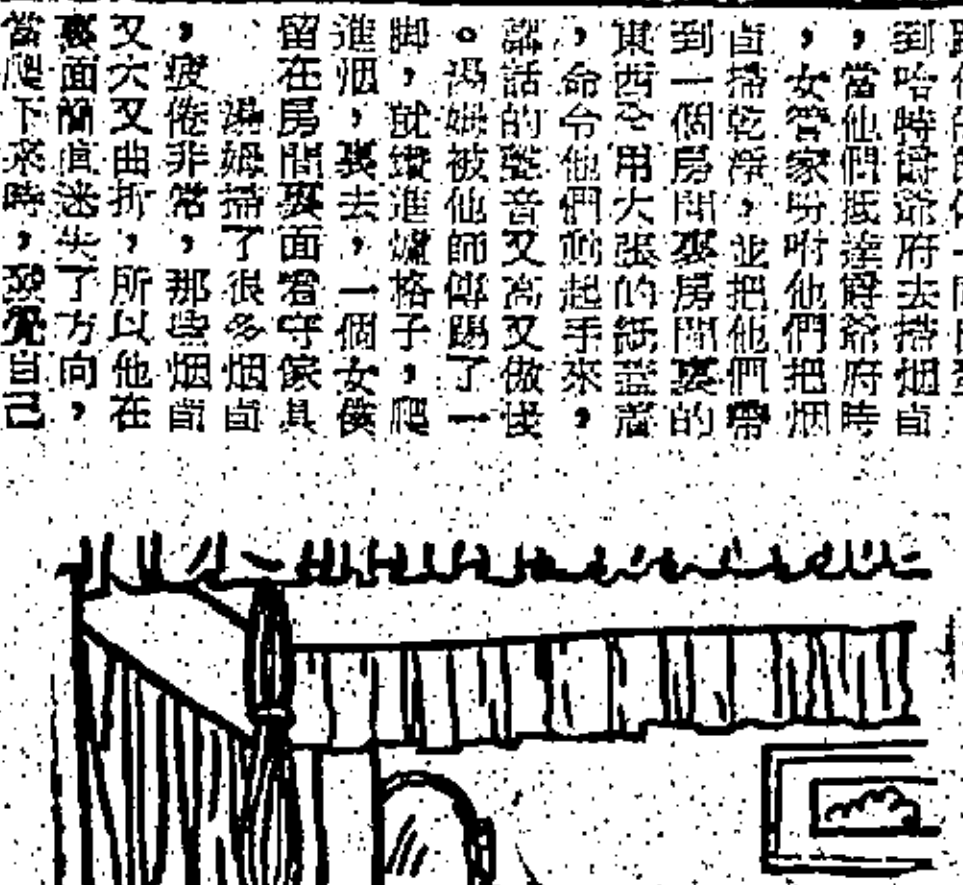 到哈時爵爺府去掃烟卣
，當他們抵達爵爺府時
，女管家吩咐他們把烟
卣掃乾淨，並把他們帶
到一個房間裏房間裏的
東西全用大張的紙蓋着
，命令他們動起手來，
說話的聲音又高又傲慢
。湯姆被他師傅踢了一
脚，就鑽進爐格子，爬
進烟，裏去，一個女僕
留在房間裏面看守傢具
、湯姆掃了很多烟卣
，疲倦非常，那些烟卣
又大又曲折，所以他在
裏面簡直迷失了方向，
當爬下來時，發覺自己